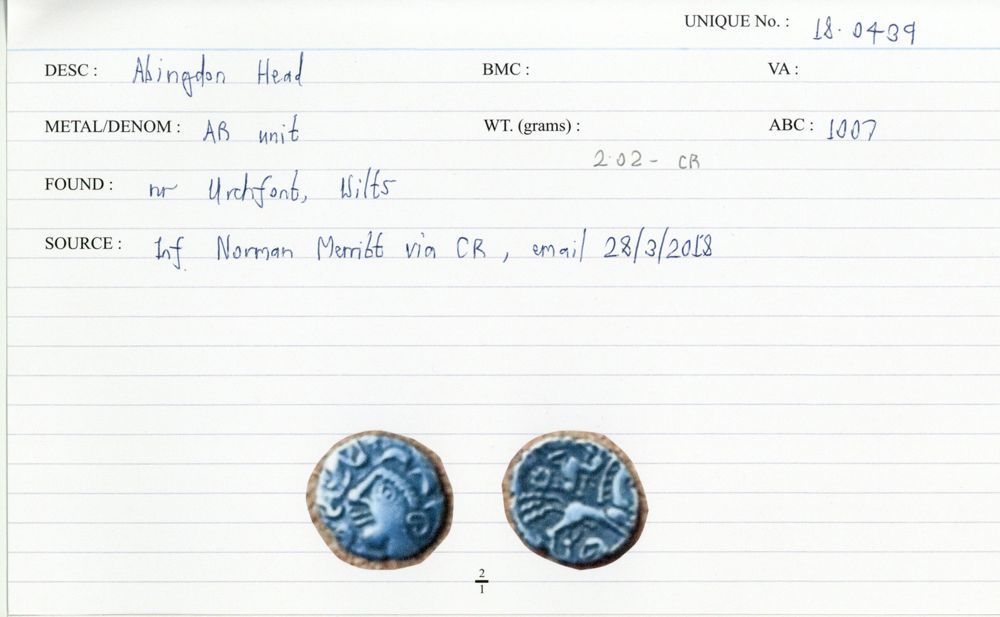 UNIQUE No. : 18.0439
DESC : Abingdon Head BMC : VA :
METAL/DENOM : AR unit WT. (grams) : ABC : 1007
2.02 - CR
FOUND : nr Urchfont, Wilts
SOURCE : Inf Norman Merritt via CR, email 28/3/2018
2
1